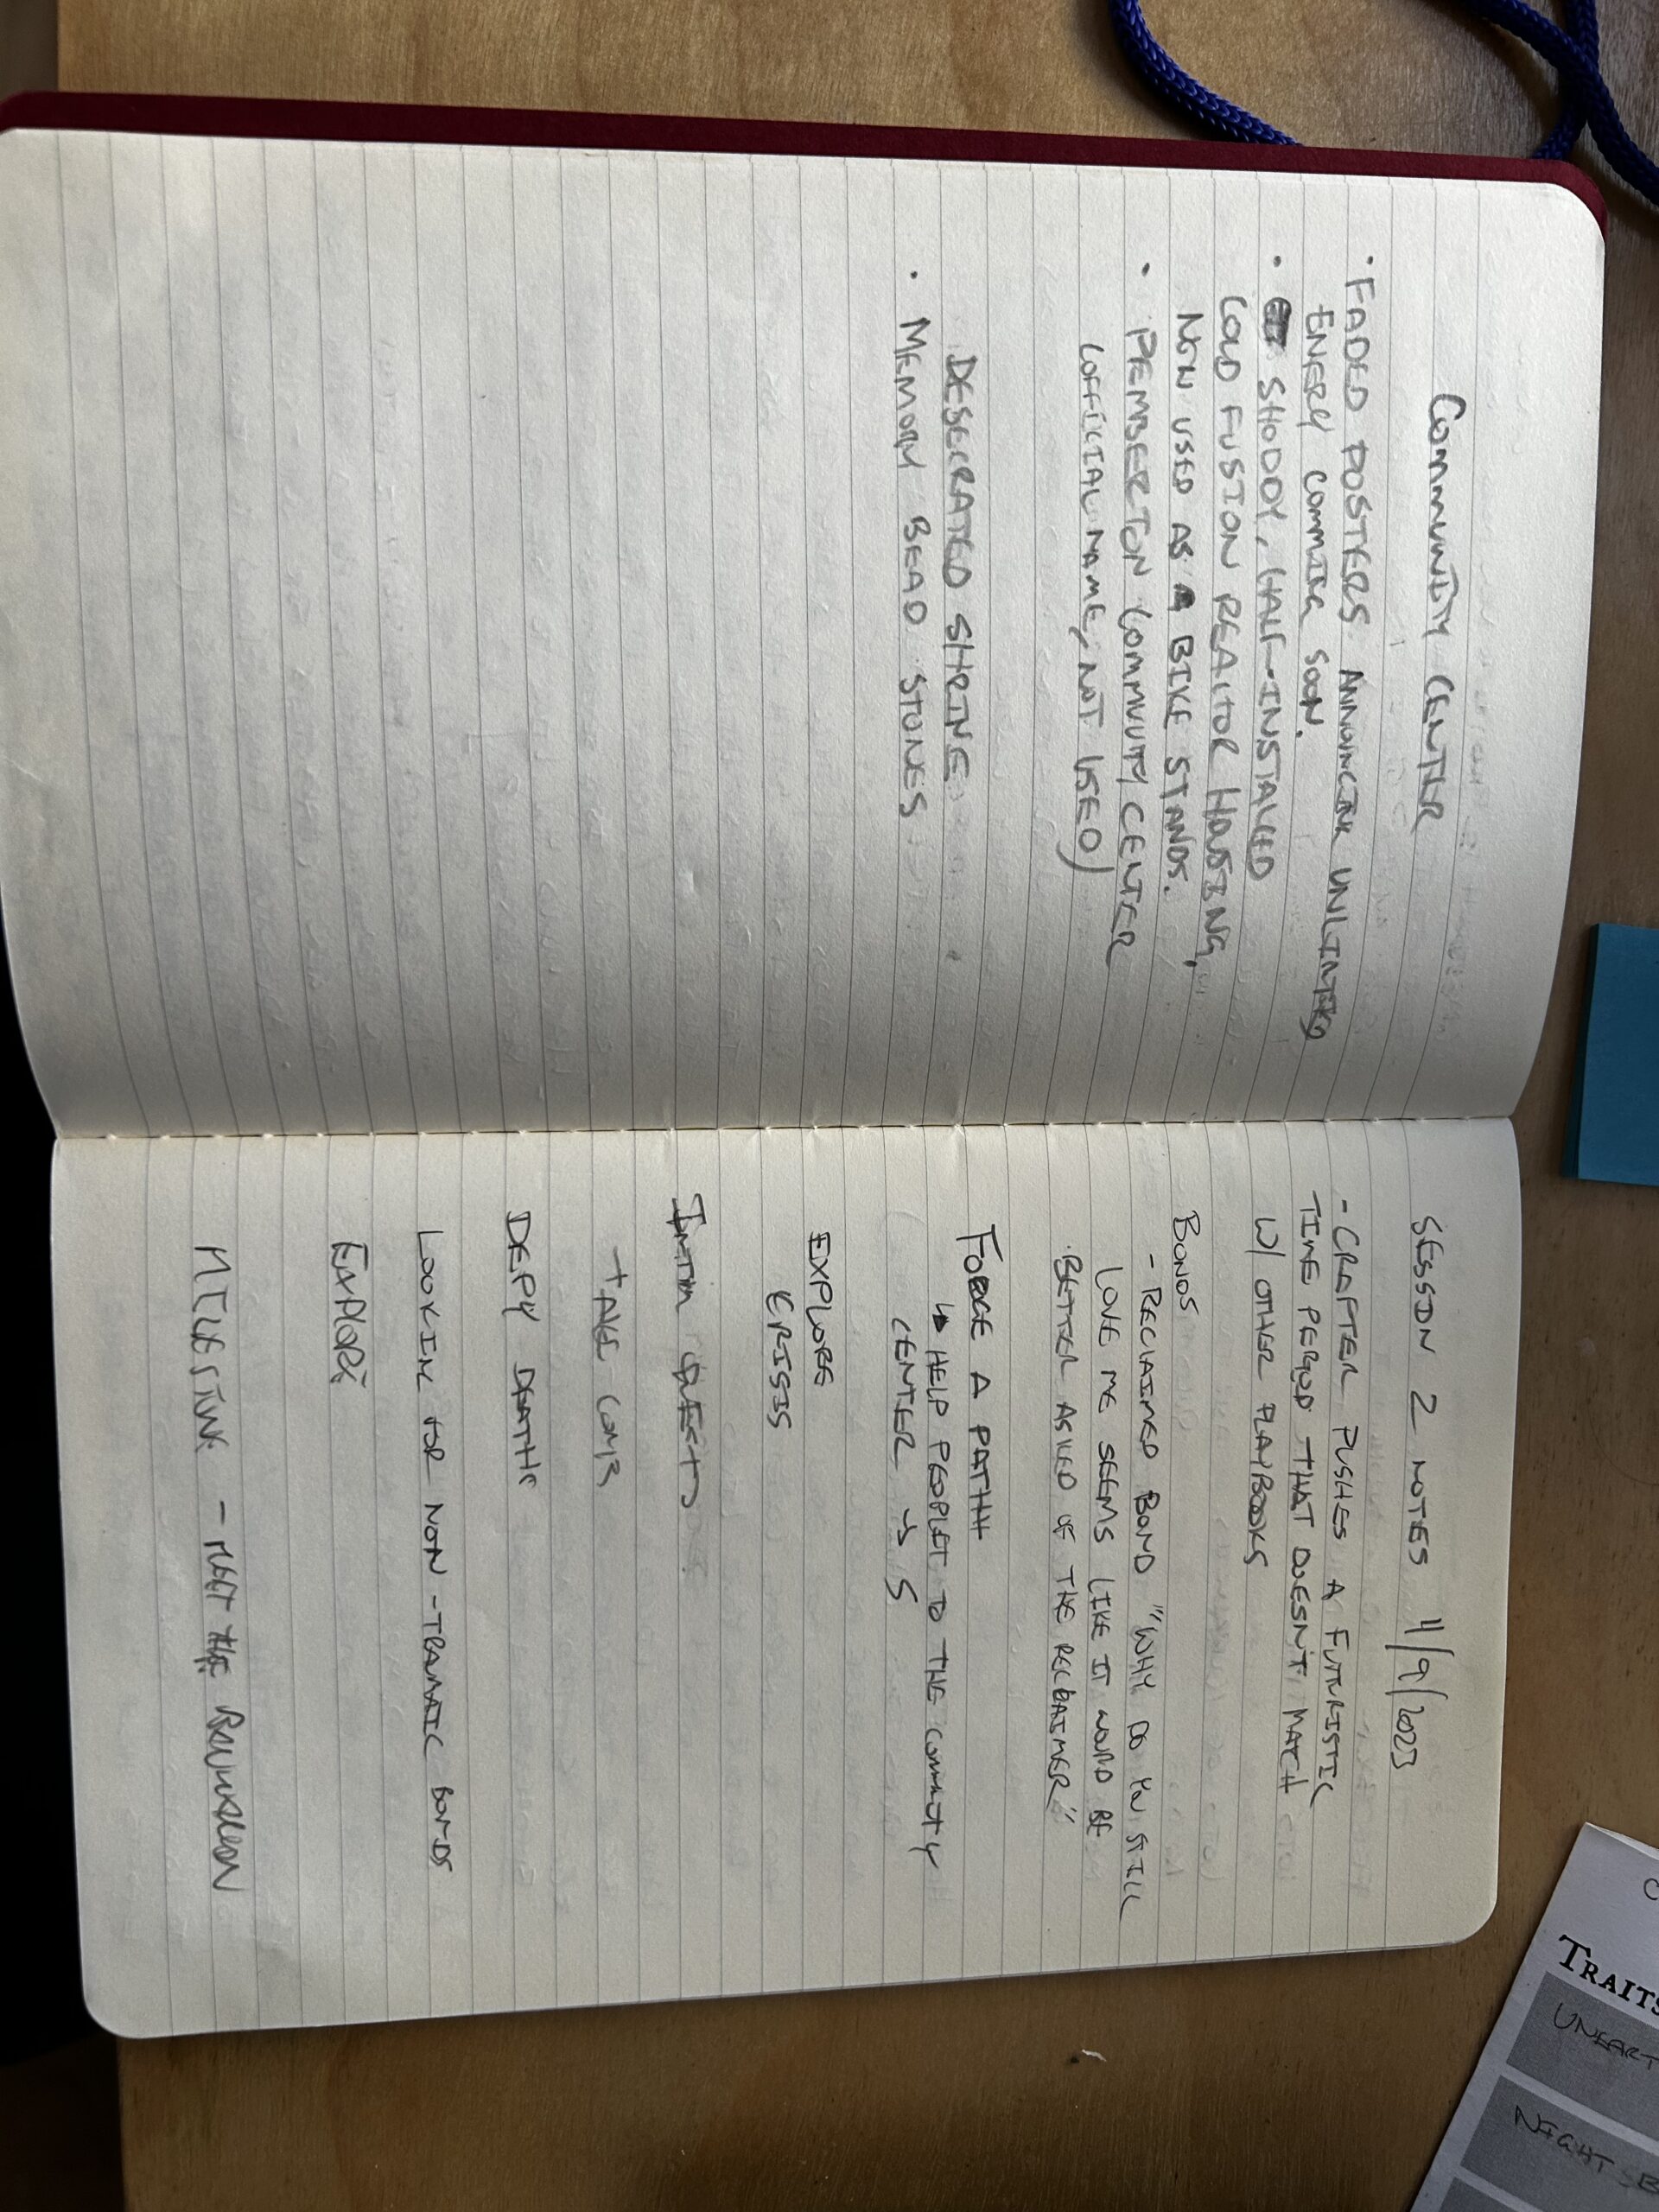 COMMUNITY CENTER
· FADED POSTERS ANNOUNCING UNLIMITED
ENERGY COMMING SOON.
· SHODDY, HALF-INSTALLED
COLD FUSION REACTOR HOUSING,
NOW USED AS A BIKE STANDS.
· PEMBERTON COMMUNITY CENTER
(OFFICIAL NAME, NOT USED)
DESECRATED SHRINE
· MEMORY BEAD STONES
SESSION 2 NOTES 11/9/2023
- CRAFTER PUSHES A FUTURISTIC
TIME PERIOD THAT DOESN'T MATCH
W/ OTHER PLAYBOOKS
BONDS
- RECLAIMED BOND "WHY DO YOU STILL
LOVE ME SEEMS LIKE IT WOULD BE
BETTER ASKED OF THE RECLAIMER"
FORGE A PATH
↳ HELP PEOPLE TO THE COMMUNITY
CENTER → 5
EXPLORE
CRISIS
- TAKE
DEFY DEATH
LOOKING FOR NON-TRAMATIC BONDS
EXPLORE
- MEET THE
TRAITS
UNEART
NIGHT